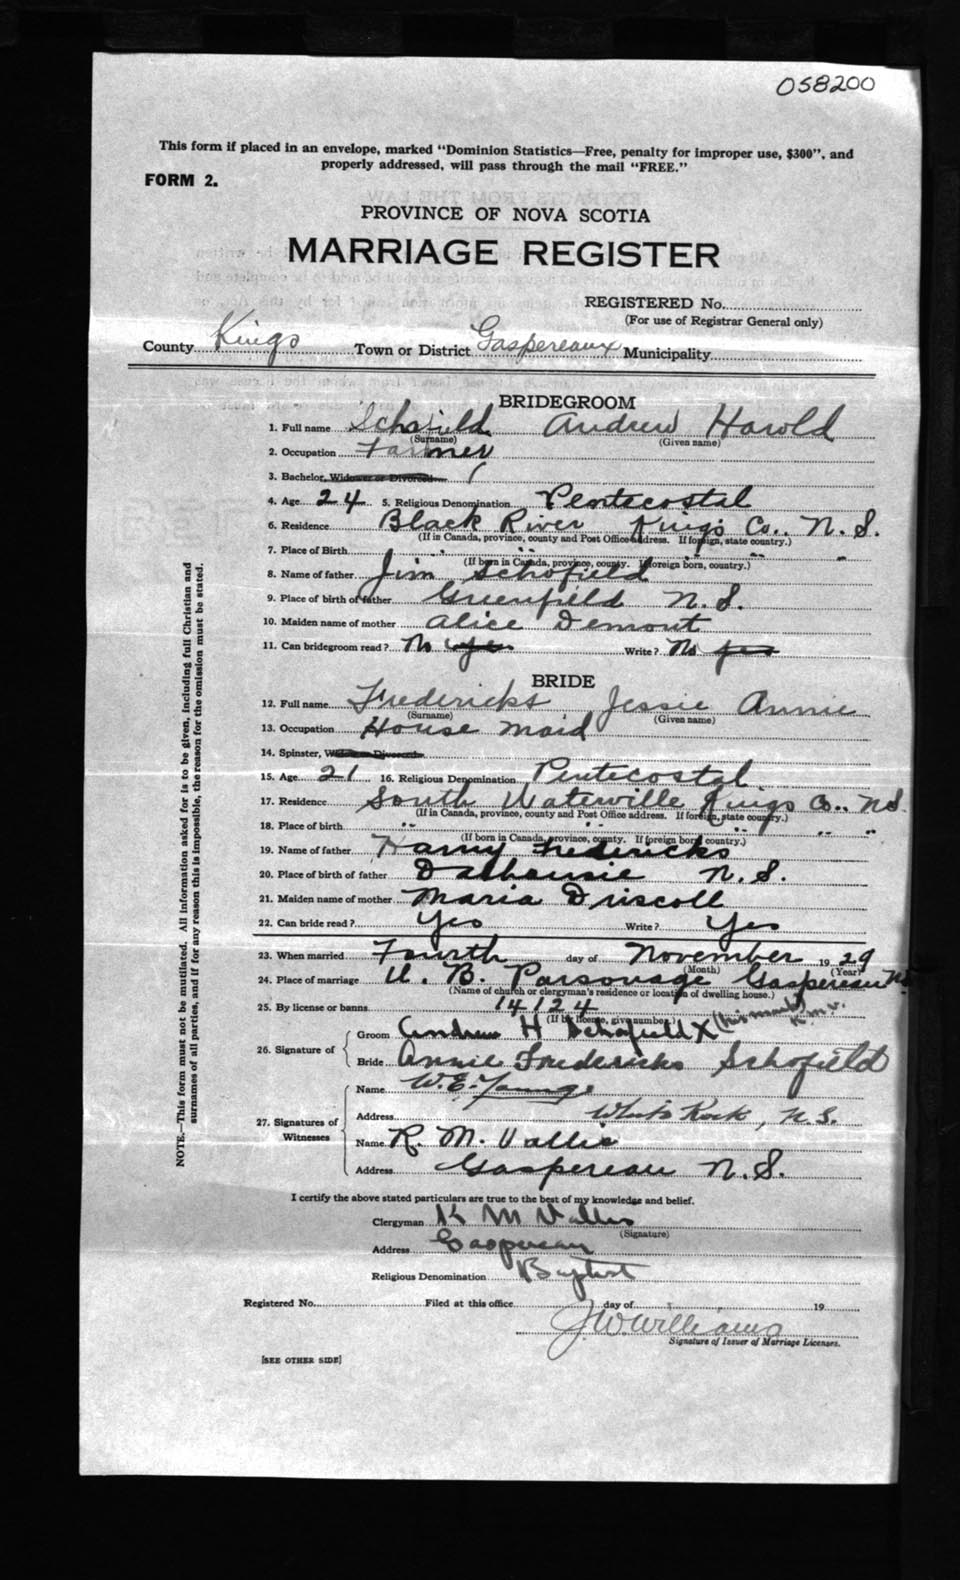 058200
This form if placed in an envelope, marked "Dominion Statistics—Free, penalty for improper use, $300", and
properly addressed, will pass through the mail "FREE."
FORM 2.
PROVINCE OF NOVA SCOTIA
MARRIAGE REGISTER
REGISTERED No.
(For use of Registrar General only)
County Kings Town or District Gaspereaux Municipality
BRIDEGROOM
1. Full name Schofield Andrew Harold
(Surname) (Given name)
2. Occupation Farmer
3. Bachelor, Widower or Divorced
4. Age 24 5. Religious Denomination Pentecostal
6. Residence Black River Kings Co.. N. S.
(If in Canada, province, county and Post Office address. If foreign, state country.)
7. Place of Birth " " " "
(If born in Canada, province, county. If foreign born, country.)
8. Name of father Jim Schofield
9. Place of birth of father Greenfield N. S.
10. Maiden name of mother Alice Demont
11. Can bridegroom read? No yes Write? No yes
BRIDE
12. Full name Fredericks Jessie Annie
(Surname) (Given name)
13. Occupation House Maid
14. Spinster, Widow or Divorced
15. Age 21 16. Religious Denomination Pentecostal
17. Residence South Waterville Kings Co.. N S.
(If in Canada, province, county and Post Office address. If foreign, state country.)
18. Place of birth " " " "
(If born in Canada, province, county. If foreign born, country.)
19. Name of father Harry Fredericks
20. Place of birth of father Dalhousie N. S.
21. Maiden name of mother Maria Driscoll
22. Can bride read? Yes Write? Yes
23. When married Fourth day of November 19 29
(Month) (Year)
24. Place of marriage U. B. Parsonage Gaspereau N.S.
(Name of church or clergyman's residence or location of dwelling house.)
25. By license or banns 14124
(If by license, give number) (his mark) R.M.V.
26. Signature of Groom Andrew H Schofield X
Bride Annie Fredericks Schofield
27. Signatures of Witnesses
Name W. E. Young
Address White Rock, N.S.
Name R. M. Vallis
Address Gaspereau N.S.
I certify the above stated particulars are true to the best of my knowledge and belief.
Clergyman R M Vallis
(Signature)
Address Gaspereau
Religious Denomination Baptist
Registered No. Filed at this office day of 19
J.W. Williams
Signature of Issuer of Marriage Licenses.
[SEE OTHER SIDE]
NOTE.—This form must not be mutilated. All information asked for is to be given, including full Christian and
surnames of all parties, and if for any reason this is impossible, the reason for the omission must be stated.